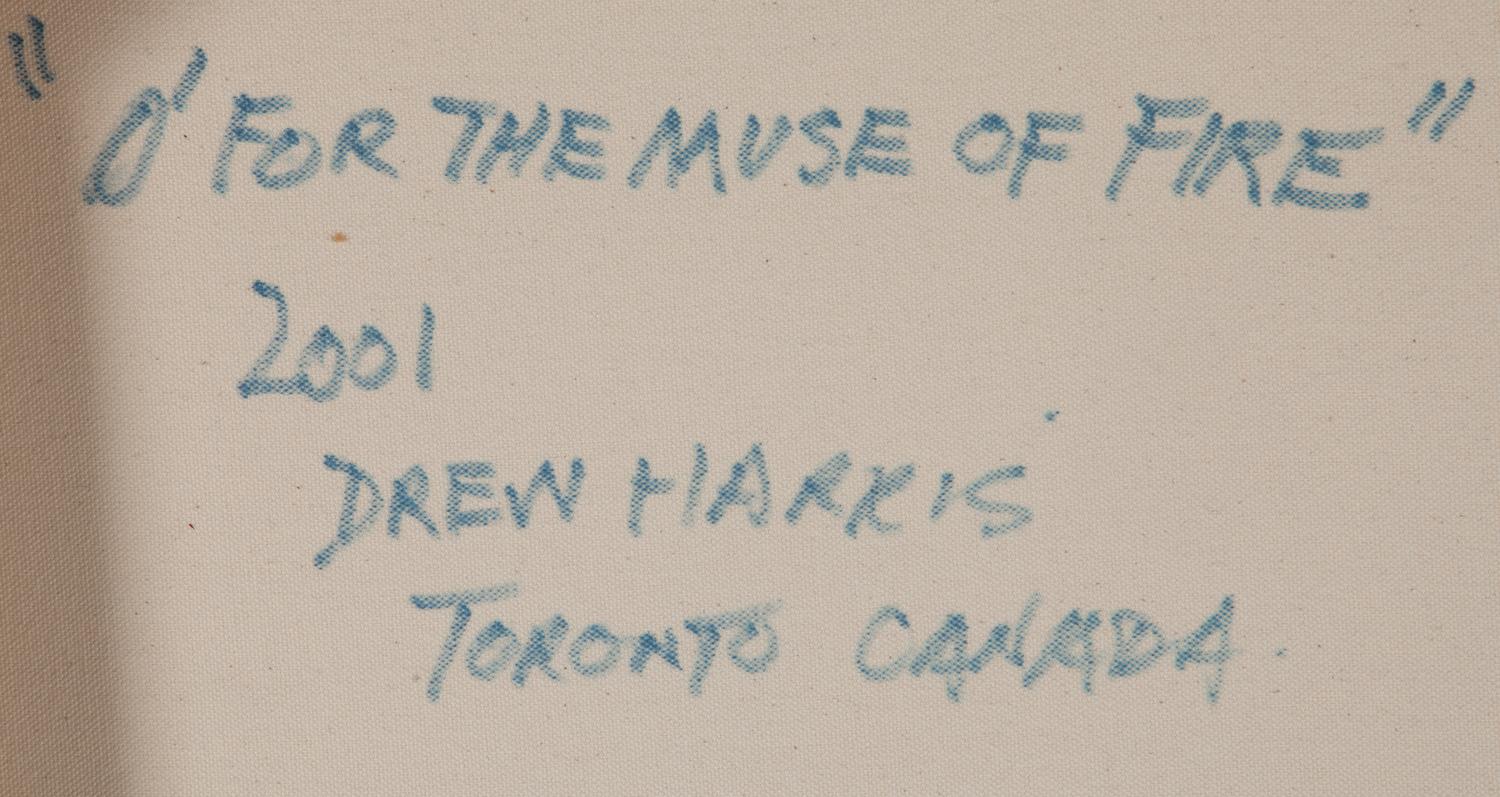 "O' FOR THE MUSE OF FIRE"
2001
DREW HARRIS
TORONTO CANADA.